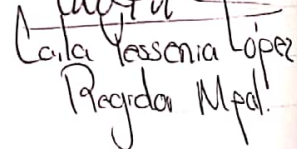 Carla Yessenia López
Regidor Mpal.